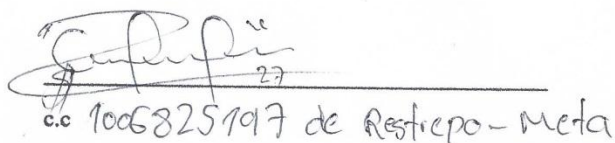 27
c.c 1006825197 de Restrepo - Meta